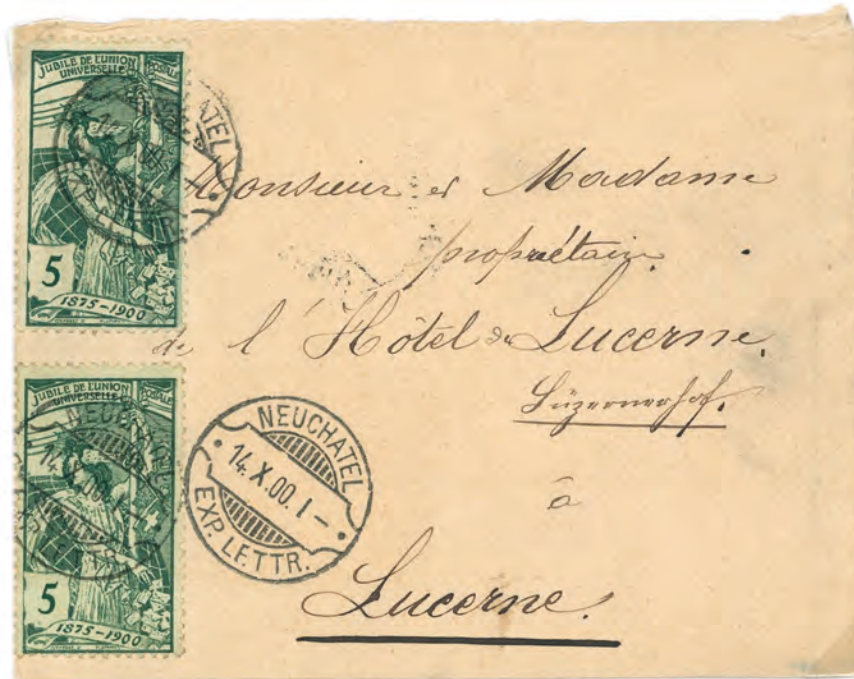 JUBILÉ DE L'UNION POSTALE
UNIVERSELLE
5
1875-1900
Monsieur et Madame
propriétair.
de l'Hôtel de Lucerne
Luzernerhof.
à
Lucerne.
JUBILÉ DE L'UNION POSTALE
UNIVERSELLE
5
1875-1900
NEUCHATEL
14.X.00.I-
EXP. LETTR.